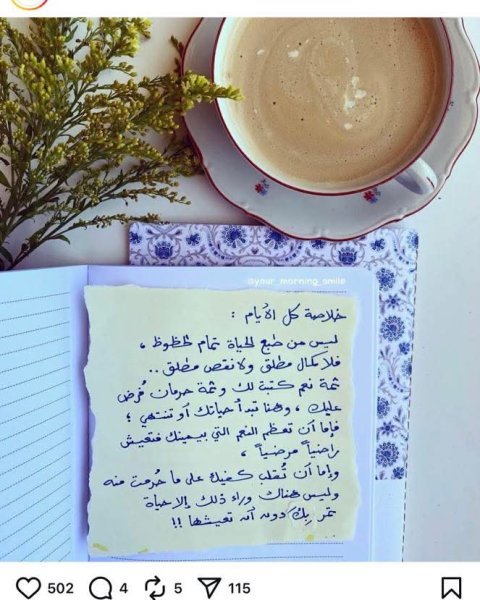 @your_morning_smile
خلاصة كل الأيام :
ليس من طبع الحياة تمام الحظوظ ،
فلا كمال مطلق ولا نقص مطلق ..
ثمة نعم كتبة لك وثمة حرمان فُرض
عليك ، وهنا تبدأ حياتك أو تنتهي ؛
فإما أن تعظم النعم التي بيمينك فتعيش
راضياً مرضياً ،
وإما أن تُقلب كفيك على ما حُرمت منه
وليس هناك وراء ذلك إلا حياة
تمر بك دون أن تعيشها !!
502 4 5 115